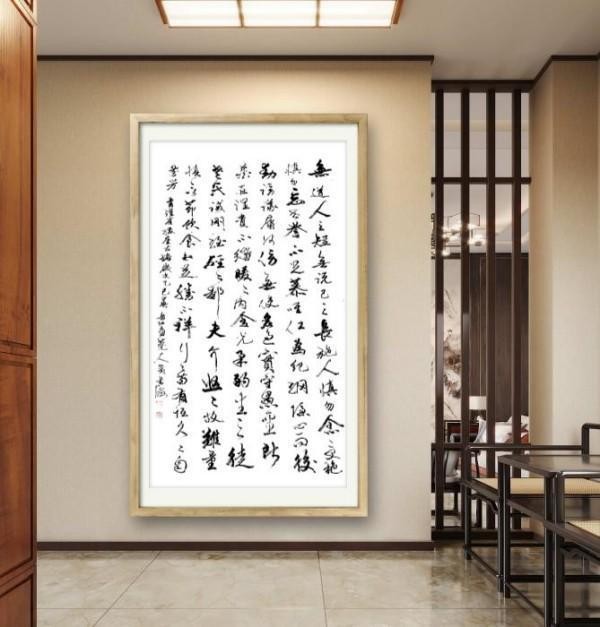 無道人之短無說己之長施人慎勿念受施
慎勿忘世譽不足慕唯仁為紀綱隱心而後
動謗議庸何傷無使名過實守愚聖所
臧在涅貴不緇曖々內含光柔弱生之徒
老氏誡剛強硜々鄙夫介悠々故難量
慎言節飲食知足勝不祥行之苟有恆久々自
芬芳 書漢崔瑗座右銘